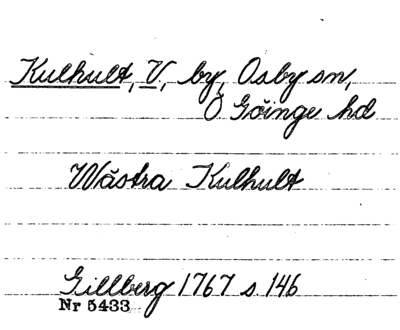 Kulhult, V., by, Osby sn,
Ö Göinge hd
Wästra Kulhult
Gillberg 1767 s. 146
Nr 5433